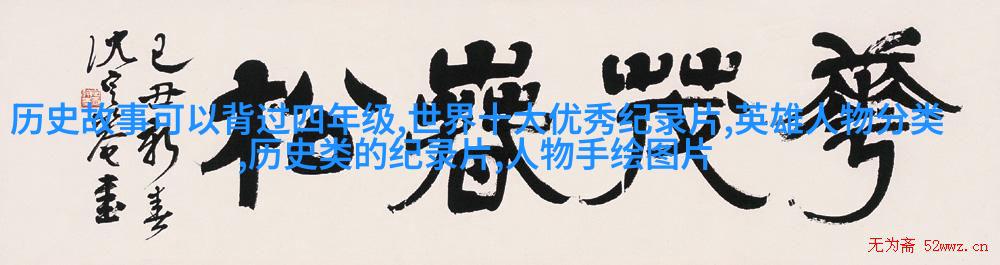 華茂春松
己丑新春
沈定庵書
历史故事可以背过四年级,世界十大优秀纪录片,英雄人物分类
,历史类的纪录片,人物手绘图片
无为斋 52wwz.cn